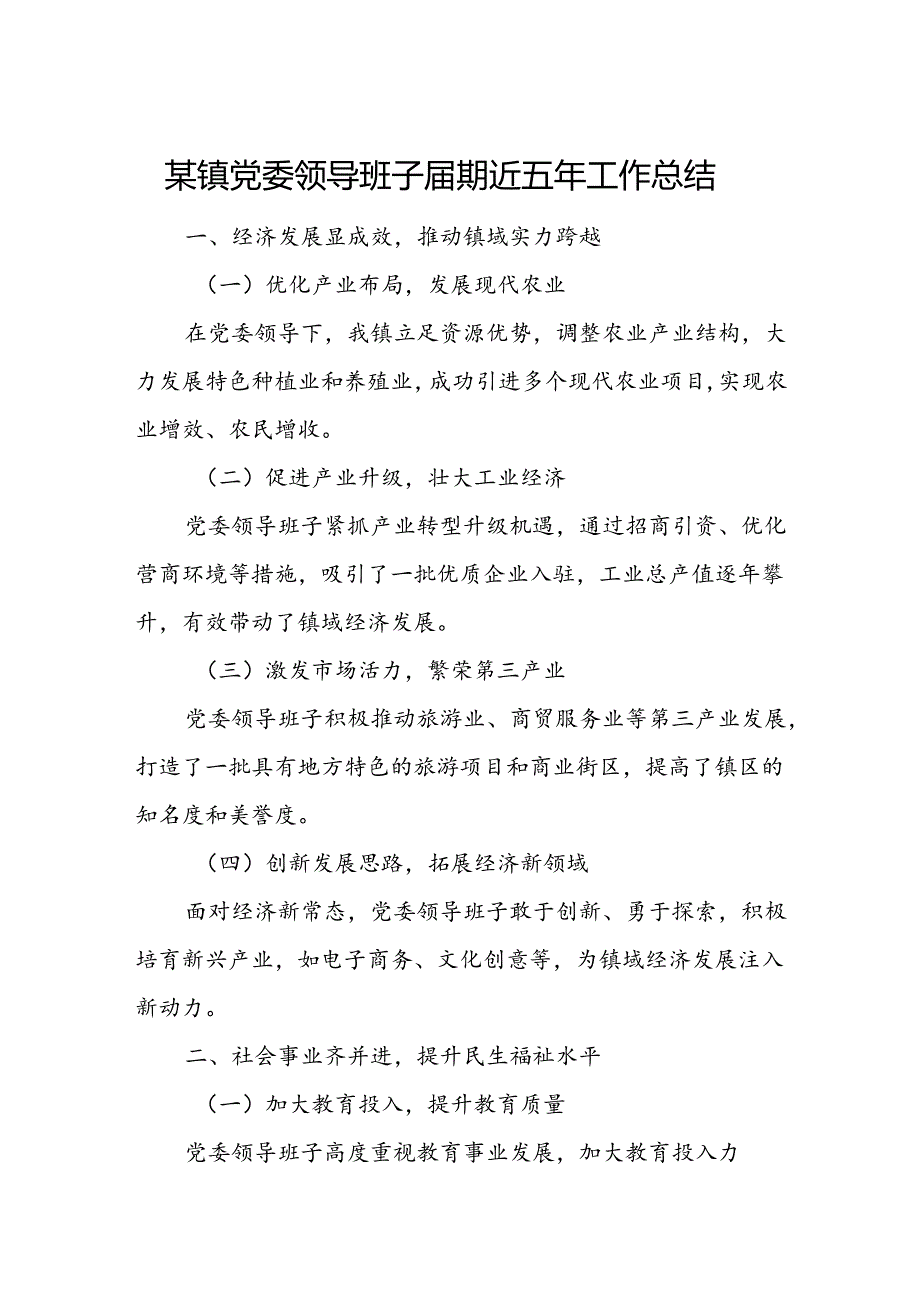 某镇党委领导班子届期近五年工作总结
一、经济发展显成效，推动镇域实力跨越
（一）优化产业布局，发展现代农业
在党委领导下，我镇立足资源优势，调整农业产业结构，大
力发展特色种植业和养殖业,成功引进多个现代农业项目,实现农
业增效、农民增收。
（二）促进产业升级，壮大工业经济
党委领导班子紧抓产业转型升级机遇，通过招商引资、优化
营商环境等措施，吸引了一批优质企业入驻，工业总产值逐年攀
升，有效带动了镇域经济发展。
（三）激发市场活力，繁荣第三产业
党委领导班子积极推动旅游业、商贸服务业等第三产业发展，
打造了一批具有地方特色的旅游项目和商业街区，提高了镇区的
知名度和美誉度。
（四）创新发展思路，拓展经济新领域
面对经济新常态，党委领导班子敢于创新、勇于探索，积极
培育新兴产业，如电子商务、文化创意等，为镇域经济发展注入
新动力。
二、社会事业齐并进，提升民生福祉水平
（一）加大教育投入，提升教育质量
党委领导班子高度重视教育事业发展，加大教育投入力